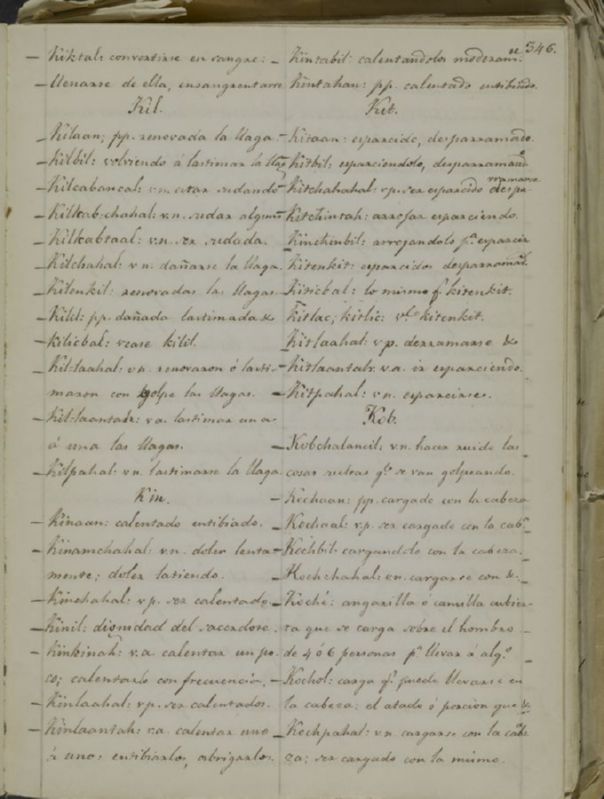 346.
– Kiktal: convertirse en sangre:
llenarse de ella, ensangrentarse
Kil.
– Kilaan; pp. renovada la llaga.
– Kilbil: volviendo á lastimar la llaga
– Kilcabancal: v.n. estar sudando
– Kilkab-chahal: v.n. sudar alguno
– Kilkabtaal: v.n. ser sudada.
– Kilchahal: v.n. dañarse la llaga.
– Kilenkil: renovadas las llagas.
– Kilil: pp. dañada lastimada &
– kilicbal: vease kilil.
– Kil-laahal: v.p. renovaron ó lasti-
maron con golpe las llagas.
– Kil-laantah: v.a. lastimar una
á una las llagas.
– Kilpahal: v.n. lastimarse la llaga
Kin.
– Kinaan: calentado entibiado.
– Kinamchahal: v.n. doler lenta-
mente; doler latiendo.
– Kinchahal: v.p. ser calentado.
– Kinil: dignidad del sacerdote.
– Kinkinah: v.a. calentar un po-
co; calentarlo con frecuencia.
– Kinlaahal: v.p. ser calentados.
– Kinlaantah: v.a. calentar uno
á uno: entibiarlos, abrigarlos.
– Kintabil: calentandolos moderam.te
– Kintahan: pp. calentado entibiado.
Kit.
– Kitaan: esparcido, desparramado.
– Kitbil: esparciendolo, desparramando
– Kitchahahal: v.p. ser esparcido despa-
rramarse
– Kitchintah: arrojar esparciendo.
– Kinchinbil: arrojandolo p.a esparcir
– Kitenkit: esparcidos desparramad.
– Kiticbal: lo mismo q. kitenkit.
– Kitlac, kitlic: v.l kitenkit.
– Kitlaahal: v.p. derramarse &
– Kitlaantah: v.a. ir esparciendo.
– Kitpahal: v.n. esparcirse.
Kob.
– Kobchalancil: v.n. hacer ruido las
cosas que se van golpeando.
– Kochaan: pp. cargado con la cabeza
– Kochaal: v.p. ser cargado con la cab.a
– Kochbil: cargandolo con la cabeza.
– Kochchahal: v.n. cargarse con &.
– Koché: angarilla ó camilla cubier-
ta que se carga sobre el hombro
de 4 ó 6 personas p.a llevar á alg.o
– Kochol: carga q.e puede llevarse en
la cabeza: el atado ó porcion que &.
– Kochpahal: v.n. cargarse con la cabe-
za; ser cargado con la misma.